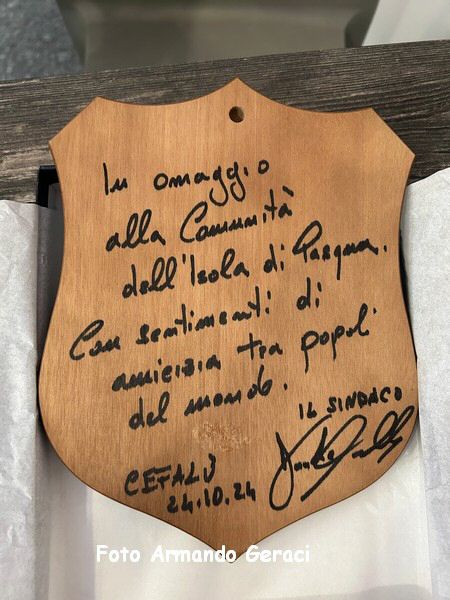 In omaggio
alla Comunità
dell'Isola di Pasqua.
Con sentimenti di
amicizia tra popoli
del mondo.
IL SINDACO
CEFALÙ
24.10.24
Foto Armando Geraci